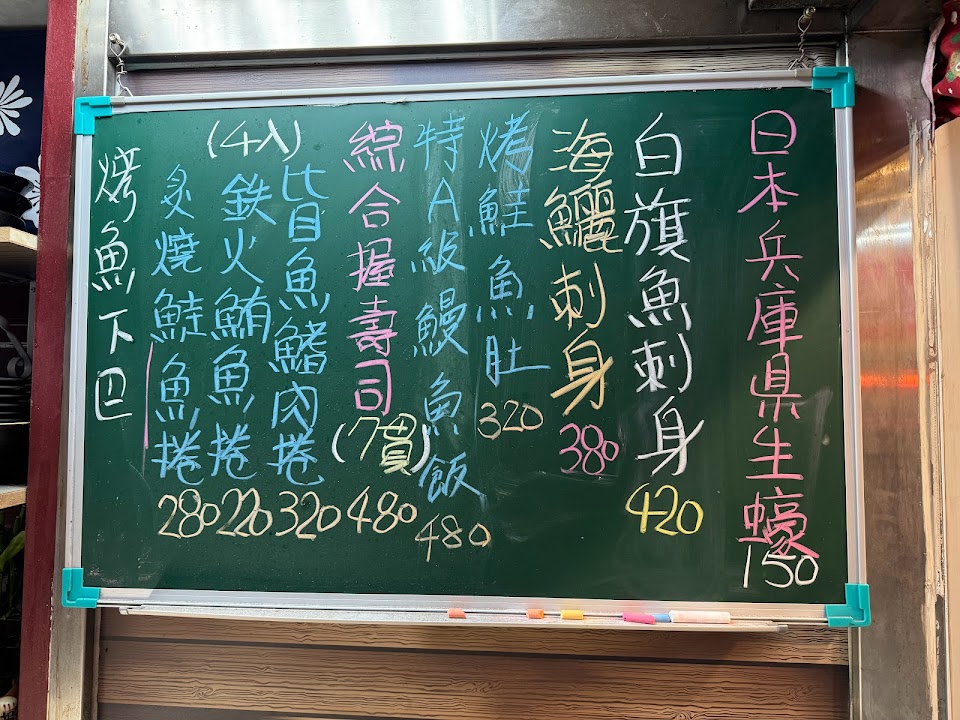 日本兵庫県生蠔150
白旗魚刺身420
海鱺刺身380
烤鮭魚肚320
特A級鰻魚飯480
綜合握壽司(7貫)480
(4入)
比目魚鰭肉捲320
鉄火鮪魚捲220
炙燒鮭魚捲280
烤魚下巴